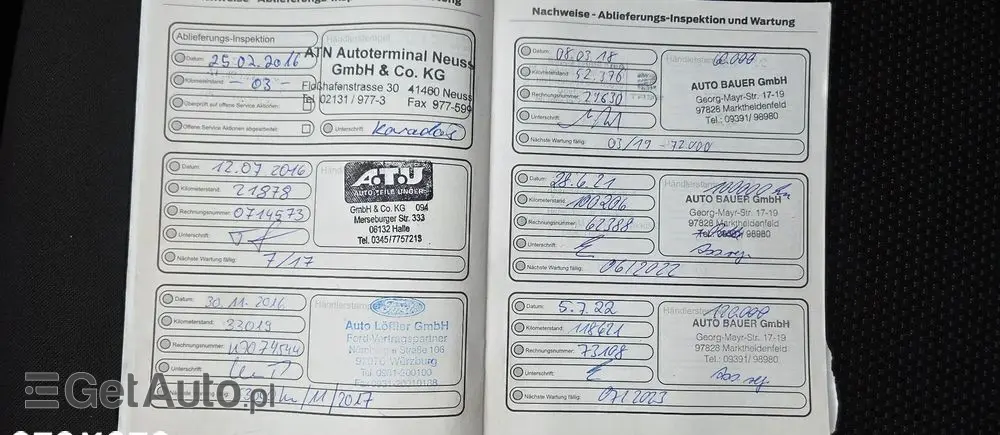 Nachweise - Ablieferungs-Inspektion und Wartung
Ablieferungs-Inspektion
Händlerstempel
Datum: 25.02.2016
Kilometerstand: - 03 -
Überprüft auf offene Service Aktionen:
Offene Service Aktionen abgearbeitet:
ATN Autoterminal Neuss
GmbH & Co. KG
Floßhafenstrasse 30 41460 Neuss
Tel 02131 / 977-3 Fax 977-599
Unterschrift:
Datum: 12.07 2016
Kilometerstand: 21878
Rechnungsnummer: 0714573
Unterschrift:
Nächste Wartung fällig: 7/17
ATU
AUTO TEILE UNGER
GmbH & Co. KG 094
Merseburger Str. 333
06132 Halle
Tel. 0345/7757213
Datum: 30.11.2016
Kilometerstand: 33019
Rechnungsnummer:
Unterschrift:
Nächste Wartung /11/2017
Händlerstempel
Ford
Auto Löffler GmbH
Ford-Vertragspartner
Nürnberger Straße 106
97076 Würzburg
Tel 0931-200100
Nachweise - Ablieferungs-Inspektion und Wartung
Datum: 08.03.18
Kilometerstand: 52.376
Rechnungsnummer: 21630
Unterschrift:
Nächste Wartung fällig: 03/19 - 72.000
Händlerstempel 60.000
AUTO BAUER GmbH
Georg-Mayr-Str. 17-19
97828 Marktheidenfeld
Tel.: 09391/ 98980
Datum: 28.6.21
Kilometerstand: 100206
Rechnungsnummer: 62388
Unterschrift:
Nächste Wartung fällig: 06/2022
Händlerstempel 100000 km
AUTO BAUER GmbH
Georg-Mayr-Str. 17-19
97828 Marktheidenfeld
Tel.: 09391/ 98980
Datum: 5.7.22
Kilometerstand: 118621
Rechnungsnummer: 73108
Unterschrift:
Nächste Wartung fällig: 07/2023
Händlerstempel 120.000
AUTO BAUER GmbH
Georg-Mayr-Str. 17-19
97828 Marktheidenfeld
Tel.: 09391/ 98980
GetAuto.pl